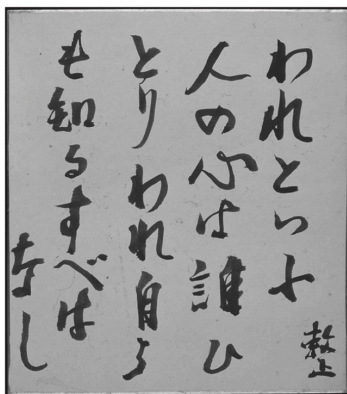 われといふ
人の心は誰ひ
とりわれ自ら
も知るすべは
なし